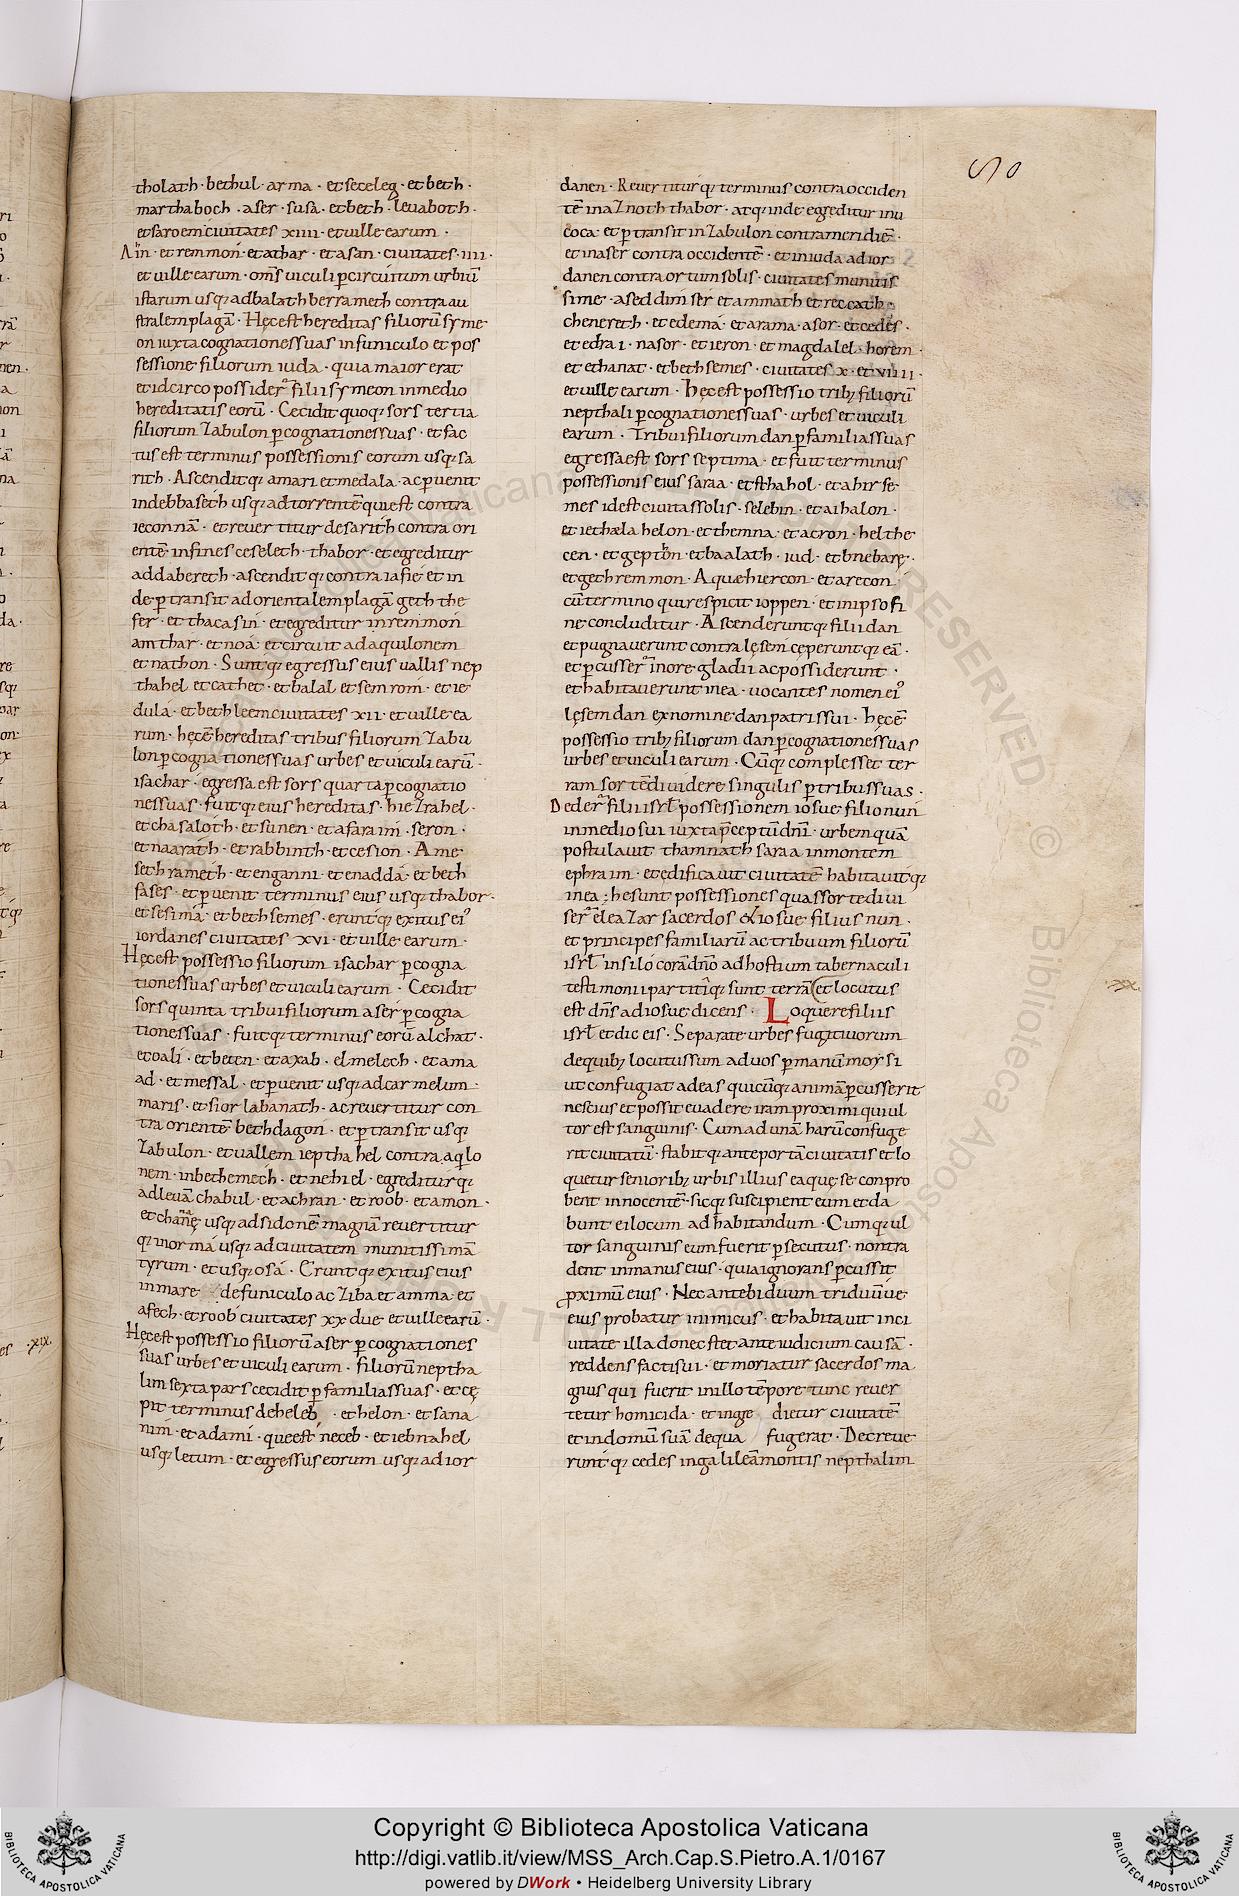 tholath · bethul · arma · et seceleg · et beth ·
marthaboch · aser · susa · et beth · leuaboth ·
et saroem ciuitates xiiii · et uille earum ·
Ain · et remmon · et athar · et asan · ciuitates · iiii ·
et uille earum · oms̄ uiculi ꝑcircuitum urbiū
istarum usq; ad balath berrameth contra au
stralem plagā · Hęc est hereditas filiorū syme
on iuxta cognationes suas in funiculo et pos
sessione filiorum iuda · quia maior erat
et idcirco possider̄ filii symeon in medio
hereditatis eorū · Cecidit quoq; sors tertia
filiorum zabulon ꝑ cognationes suas · et fac
tus est terminus possessionis eorum usq; sa
rith · Ascenditq; amari et medala · ac ꝑuenit
in debbaseth usq; ad torrentē qui est contra
ieconnā · et reuertitur de sarith contra ori
entē in fines ceseleth · thabor · et egreditur
ad dabereth · ascenditq; contra iafie et in
de ꝑtransit ad orientalem plagā geth the
fer · et thacasin · et egreditur in remmon
amthar · et noa · et circuit ad aquilonem
et nathon · Suntq; egressus eius uallis nep
thahel et cathet · et balal et semrom · et ie
dula · et bethleem ciuitates xii · et uille ea
rum · hęc ē hereditas tribus filiorum zabu
lon ꝑ cognationes suas urbes et uiculi earū ·
isachar · egressa est sors quarta ꝑ cognatio
nes suas · fuitq; eius hereditas · hiezrahel ·
et chasaloth · et sunen · et afaraim · seron ·
et naarath · et rabbinth · et cesion · Ame
seth rameth · et enganni · et enadda · et beth
fases · et ꝑuenit terminus eius usq; thabor ·
et sesima · et bethsemes · eruntq; exitus ei'
iordanes ciuitates xvi · et uille earum ·
Hęc est possessio filiorum isachar ꝑ cogna
tiones suas urbes et uiculi earum · Cecidit
sors quinta tribui filiorum aser ꝑ cogna
tiones suas · fuitq; terminus eorū alchat ·
et oali · et beten · et axab · elmelech · et ama
ad · et messal · et ꝑuenit usq; ad carmelum
maris · et sior labanath · ac reuertitur con
tra orientē bethdagon · et ꝑtransit usq;
zabulon · et uallem iepthahel contra aq̇lo
nem · in bethemech · et nehiel · egrediturq;
ad leuā chabul · et achran · et roob · et amon ·
et channę usq; ad sidonē magnā reuertitur
q; in orma usq; ad ciuitatem munitissimā
tyrum · et usq; osa · Eruntq; exitus eius
in mare de funiculo aczibaet amma et
afech · et roob ciuitates xx due et uille earū ·
Hęc est possessio filiorū aser ꝑ cognationes
suas urbes et uiculi earum · filiorū neptha
lim sexta pars cecidit ꝑ familias suas · et cę
pit terminus de heleb · et helon · et sana
nim · et adami · que est neceb · et iebnahel
usq; lecum · et egressus eorum usq; ad ior
danen · Reuertiturq; terminus contra occiden
tē in aznoth thabor · atq; inde egreditur inu
coca · et ꝑtransit in zabulon contra meridiē ·
et in aser contra occidentē · et in iuda ad ior
danen contra ortum solis · ciuitates munitis
sime · aseddim ser et ammath et reccath ·
chenereth · et edema · et arama · asor · et cedes ·
et edrai · nasor · et ieron · et magdalel · horem ·
et ethanat · et bethsemes · ciuitates x · et viiii ·
et uille earum · Hęc est possessio trib; filiorū
nepthali ꝑ cognationes suas · urbes et uiculi
earum · Tribui filiorum dan ꝑ familias suas
egressa est sors septima · et fuit terminus
possessionis eius saraa · et sthahol · et ahir se
mes id est ciuitas solis · selebin · et aihalon ·
et iethæla helon · et themna · et acron · helthe
cen · et gepton · et baalath · iud · et bnebarę ·
et gethremmon · Aquæ hiercon · et arecon
cū termino qui respicit ioppen · et in ipso fi
ne concluditur · Ascenderuntq; filii dan
et pugnauerunt contra lęsem cęperuntq; eā ·
et ꝑcusser̄ in ore gladii ac possiderunt ·
et habitauerunt in ea · uocantes nomen ei'
lęsem dan ex nomine dan patris sui · Hęc ē
possessio trib; filiorum dan ꝑ cognationes suas
urbes et uiculi earum · Cūq; complesset ter
ram sorte diuidere singulis ꝑ tribus suas ·
Deder̄ filii isrl̄ possessionem iosue filio nun
in medio sui iuxta p̄ceptū dn̄i · urbem quā
postulauit thamnath saraa in montem
ephraim · et ędificauit ciuitatē habitauitq;
in ea : he sunt possessiones quas sorte diui
ser̄ eleazar sacerdos & iosue filius nun ·
et principes familiarū ac tribuum filiorū
isrl̄ in silo corā dn̄o ad hostium tabernaculi
testimonii partitiq; sunt terrā et locutus
est dn̄s ad iosue dicens · Loquere filiis ·xx·
isrl̄ et dic eis · Separate urbes fugitiuorum
de quib; locutus sum ad uos ꝑ manū moysi
ut confugiat ad eas quicūq; animā ꝑcusserit
nescius et possit euadere iram proximi qui ul
tor est sanguinis · Cum ad unā harū confuge
rit ciuitatū · stabitq; ante portā ciuitatis et lo
quetur seniorib; urbis illius ea quę se conpro
bent innocentē · sicq; suscipient eum et da
bunt ei locum ad habitandum · Cumq; ul
tor sanguinis eum fuerit ꝑsecutus · non tra
dent in manus eius · quia ignorans ꝑcussit
ꝓximū eius · Nec ante biduum triduūue
eius probatur inimicus · et habitauit in ci
uitate illa donec stet ante iudicium causā ·
reddens facti sui · et moriatur sacerdos ma
gnus qui fuerit in illo tēpore tunc reuer
tetur homicida · et ingredietur ciuitatē
et in domū suā de qua fugerat · Decreue
runtq; cedes in galileā montis nepthalim
·xix·
50
Copyright © Biblioteca Apostolica Vaticana
http://digi.vatlib.it/view/MSS_Arch.Cap.S.Pietro.A.1/0167
powered by DWork • Heidelberg University Library